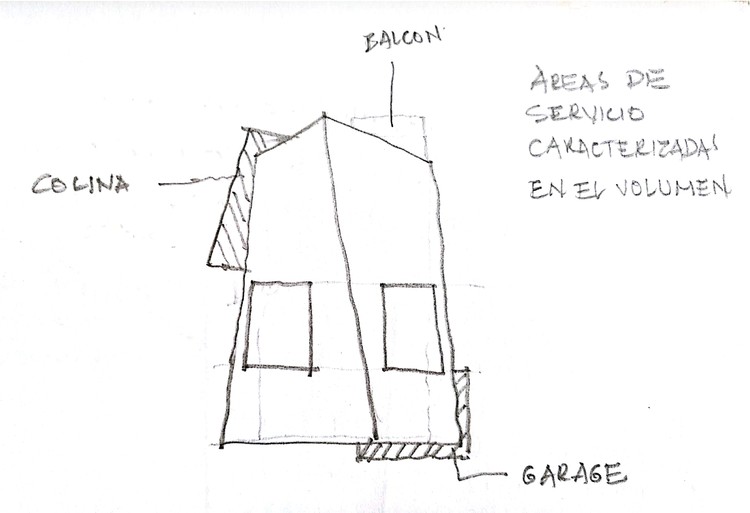 BALCON
AREAS DE
SERVICIO
CARACTERIZADAS
EN EL VOLUMEN
COCINA
GARAGE